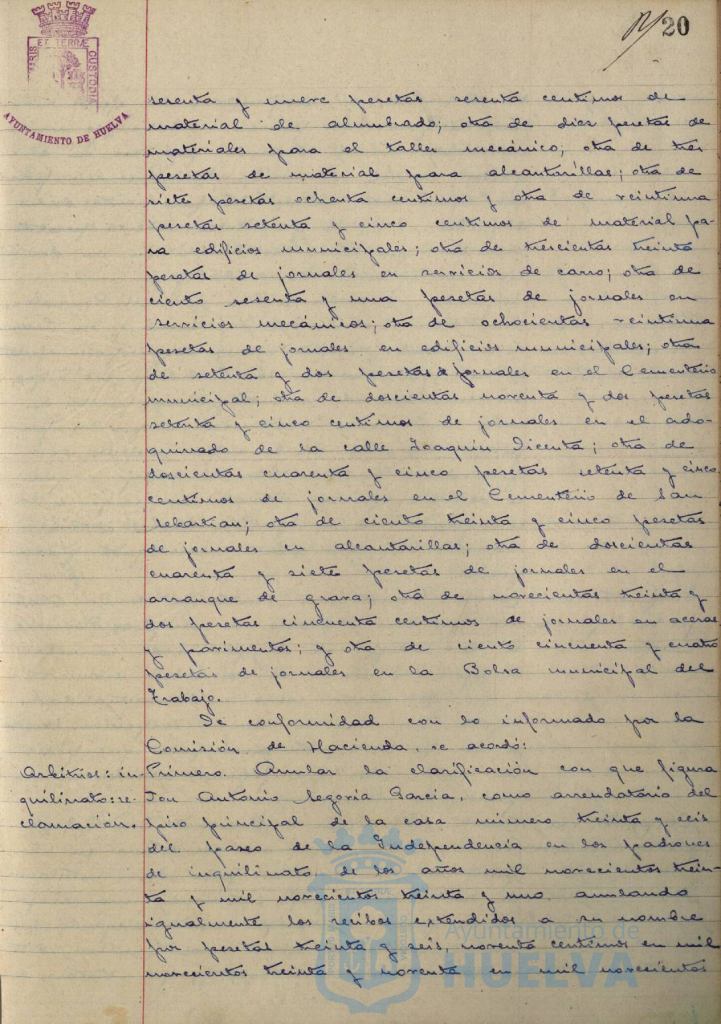 20
PORTUS MARIS ET TERRÆ CUSTODIA
AYUNTAMIENTO DE HUELVA
sesenta y nueve pesetas sesenta centimos de
material de alumbrado; otra de diez pesetas de
materiales para el taller mecánico; otra de tres
pesetas de material para alcantarillas; otra de
siete pesetas ochenta centimos y otra de veintiuna
pesetas setenta y cinco centimos de material pa-
ra edificios municipales; otra de trescientas treinta
pesetas de jornales en servicios de carro; otra de
ciento sesenta y una pesetas de jornales en
servicios mecánicos; otra de ochocientas veintiuna
pesetas de jornales en edificios municipales; otra
de setenta y dos pesetas de jornales en el Cementerio
municipal; otra de doscientas noventa y dos pesetas
setenta y cinco centimos de jornales en el ado-
quinado de la calle Joaquin Dicenta; otra de
doscientas cuarenta y cinco pesetas setenta y cinco
centimos de jornales en el Cementerio de San
Sebastian; otra de ciento treinta y cinco pesetas
de jornales en alcantarillas; otra de doscientas
cuarenta y siete pesetas de jornales en el
arranque de grava; otra de novecientas treinta y
dos pesetas cincuenta centimos de jornales en aceras
y pavimentos; y otra de ciento cincuenta y cuatro
pesetas de jornales en la Bolsa municipal del
Trabajo.
De conformidad con lo informado por la
Comisión de Hacienda, se acordó:
Arbitrios: in-
quilinato: re-
clamación.
Primero. Anular la clarificación con que figura
Don Antonio Segovia Garcia, como arrendatario del
piso principal de la casa número treinta y seis
del paseo de la Independencia en los padrones
de inquilinato, de los años mil novecientos trein-
ta y mil novecientos treinta y uno, anulando
igualmente los recibos extendidos a su nombre
por pesetas treinta y seis, noventa centimos en mil
novecientos treinta y noventa en mil novecientos
Ayuntamiento de
HUELVA